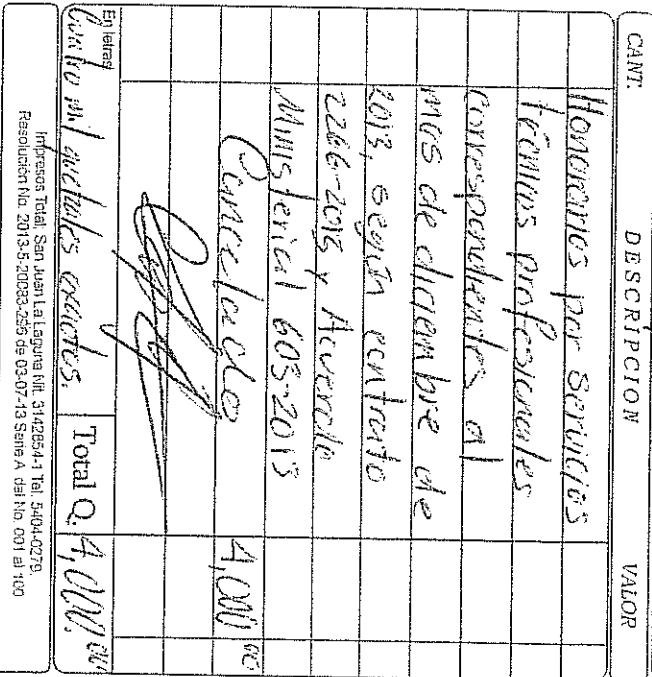 CANT. DESCRIPCION VALOR
Honorarios por Servicios
técnicos profesionales
correspondientes al
mes de diciembre de
2013, según contrato
2266-2013 y Acuerdo
Ministerial 603-2013
Cancelado 4,000.00
En letras
Cuatro mil quetzales exactos. Total Q. 4,000.00
Impresos Total, San Juan La Laguna Nit. 3142854-1 Tel. 5404-0279.
Resolución No. 2013-5-20083-256 de 03-07-13 Serie A del No. 001 al 100